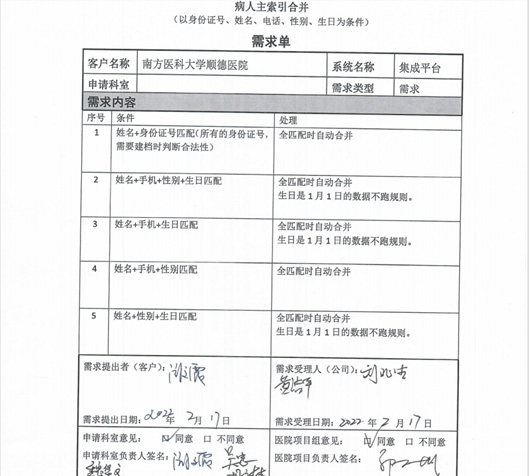 病人主索引合并
（以身份证号、姓名、电话、性别、生日为条件）
需求单
客户名称 南方医科大学顺德医院 系统名称 集成平台
申请科室 需求类型 需求
需求内容
序号 条件 处理
1 姓名+身份证号匹配(所有的身份证号， 全匹配时自动合并
需要建档时判断合法性）
2 姓名+手机+性别+生日匹配 全匹配时自动合并
生日是 1 月 1 日的数据不跑规则。
3 姓名+手机+生日匹配 全匹配时自动合并
生日是 1 月 1 日的数据不跑规则。
4 姓名+手机+性别匹配 全匹配时自动合并
5 姓名+性别+生日匹配 全匹配时自动合并
生日是 1 月 1 日的数据不跑规则。
需求提出者（客户）： 需求受理人（公司）：
需求提出日期：2022 年 2 月 17 日 需求受理日期：2022 年 2 月 17 日
申请科室意见： 同意 口 不同意 医院项目组意见： 同意 口 不同意
申请科室负责人签名： 医院项目负责人签名：